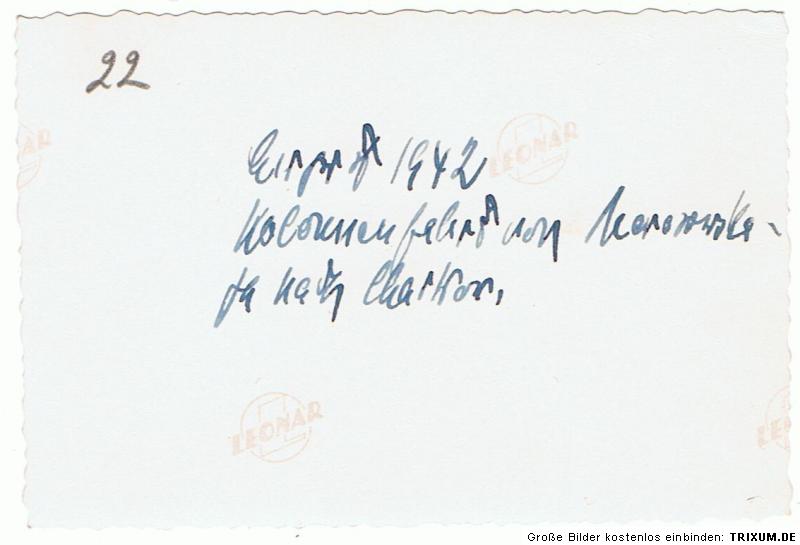 22
August 1942
Kolonnenfahrt von Morosowska-
ja nach Charkow.
LEONAR
LEONAR
Große Bilder kostenlos einbinden: TRIXUM.DE